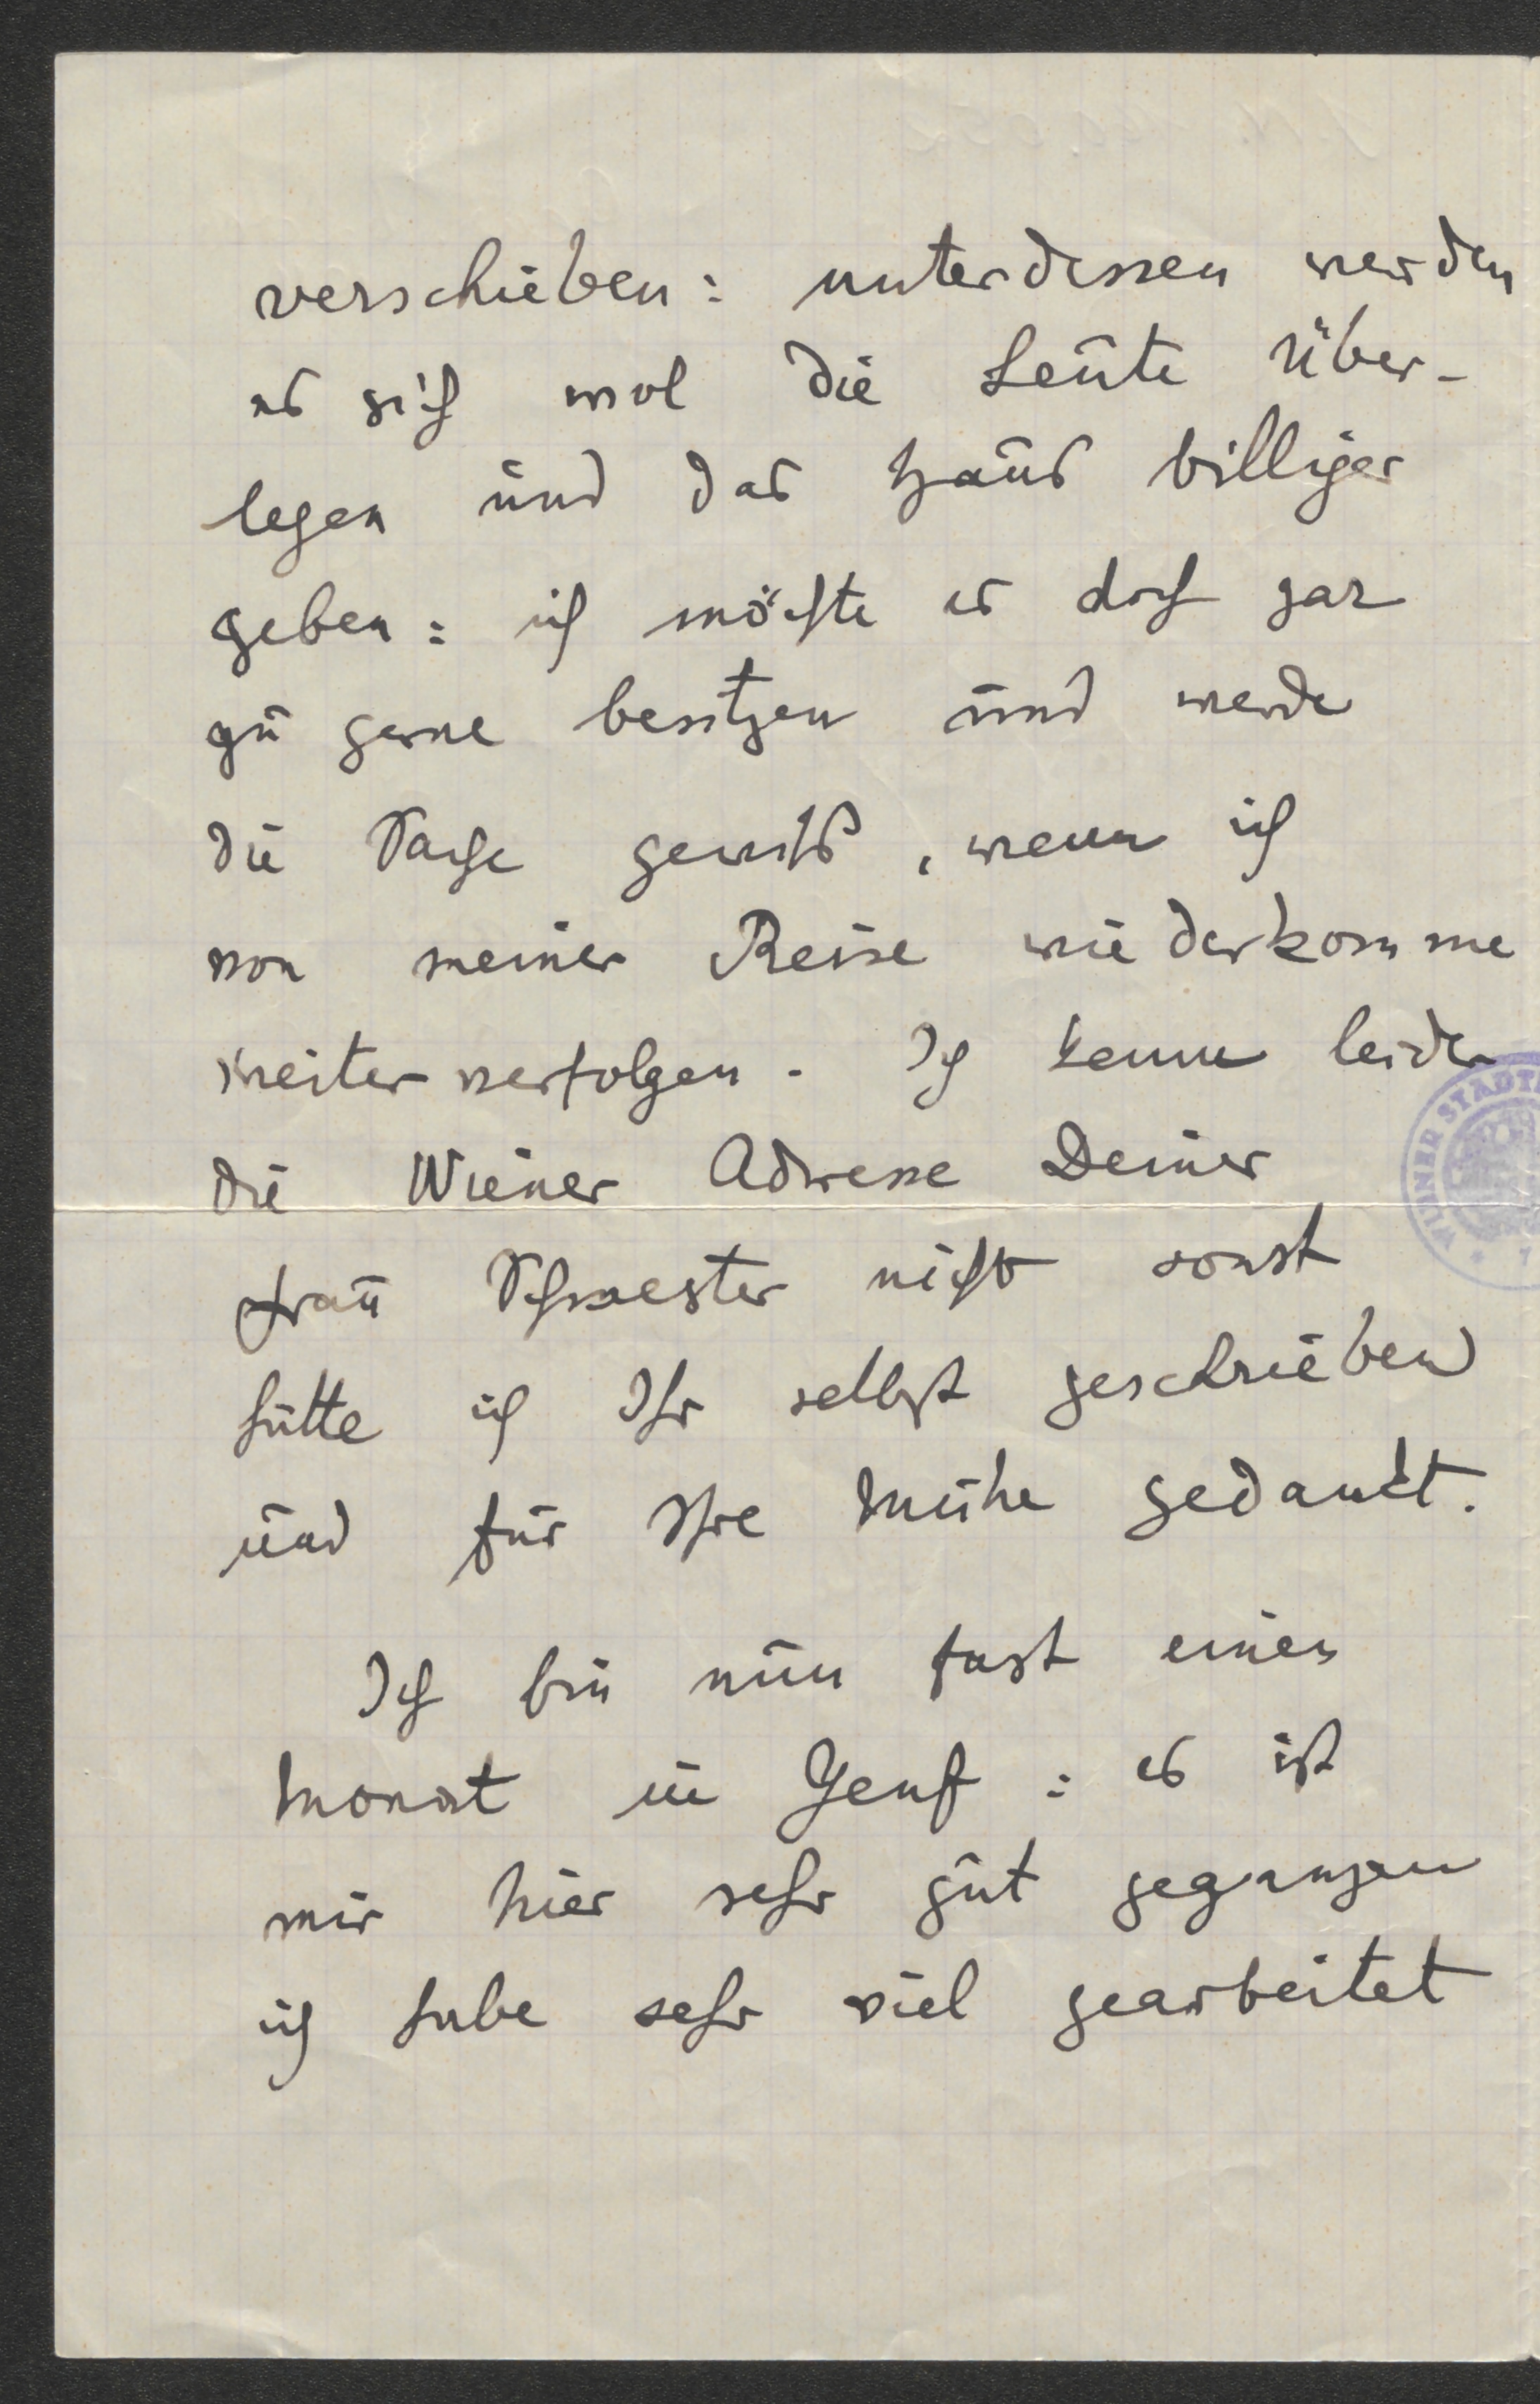 verschieben: unterdessen werden
es sich wol die Leute über-
legen und das Haus billiger
geben: ich möchte es doch gar
zu gerne besitzen und werde
die Sache gewiß, wenn ich
von meiner Reise wiederkomme
weiter verfolgen. Ich kenne leider
die Wiener Adresse Deiner
Frau Schwester nicht sonst
hätte ich Ihr selbst geschrieben
und für Ihre Mühe gedankt.
Ich bin nun fast einen
Monat in Genf: es ist
mir hier sehr gut gegangen
ich habe sehr viel gearbeitet
WIENER STADT